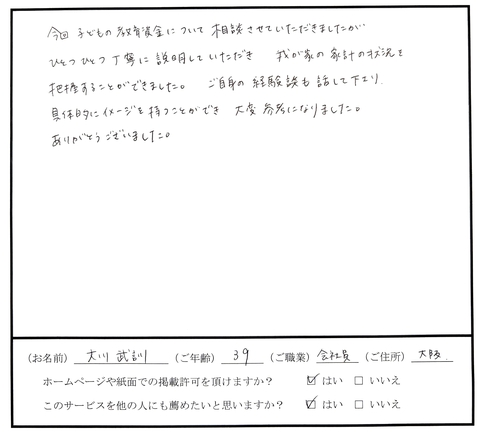 今回 子どもの教育資金について 相談させていただきましたが
ひとつひとつ丁寧に説明していただき 我が家の家計の状況を
把握することができました。 ご自身の経験談も話して下さり
具体的にイメージを持つことができ 大変参考になりました。
ありがとうございました。
(お名前) 大川 武訓 (ご年齢) 39 (ご職業) 会社員 (ご住所) 大阪
ホームページや紙面での掲載許可を頂けますか? ☑ はい □ いいえ
このサービスを他の人にも薦めたいと思いますか? ☑ はい □ いいえ